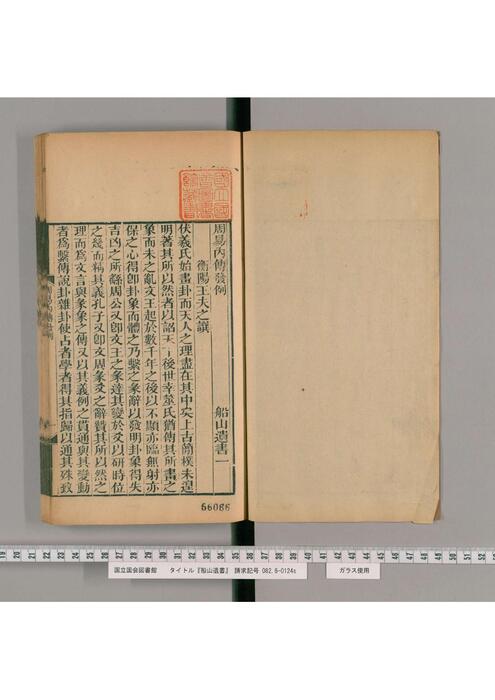 周易內傳發例　船山遺書一
衡陽王夫之譔
伏羲氏始畫卦而天人之理盡在其中矣上古簡樸未遑
明著其所以然者以詔天下後世幸筮氏猶傳其所畫之
象而未之亂文王起於數千年之後以不顯亦臨無射亦
保之心得卽卦象而體之乃繫之彖辭以發明卦象得失
吉凶之所繇周公又卽文王之彖達其變於爻以研時位
之幾而精其義孔子又卽文周彖爻之辭贊其所以然之
理而爲文言與彖象之傳又以其義例之貫通與其變動
者爲繫傳說卦雜卦使占者學者得其指歸以通其殊致
56086
19 20 21 22 23 24 25 26 27 28 29 30 31 32 33 34 35 36 37 38 39 40 41 42 43 44 45 46 47 48 49 50 51 52
国立国会図書館　タイトル『船山遺書』　請求記号 082.6-0124s
ガラス使用